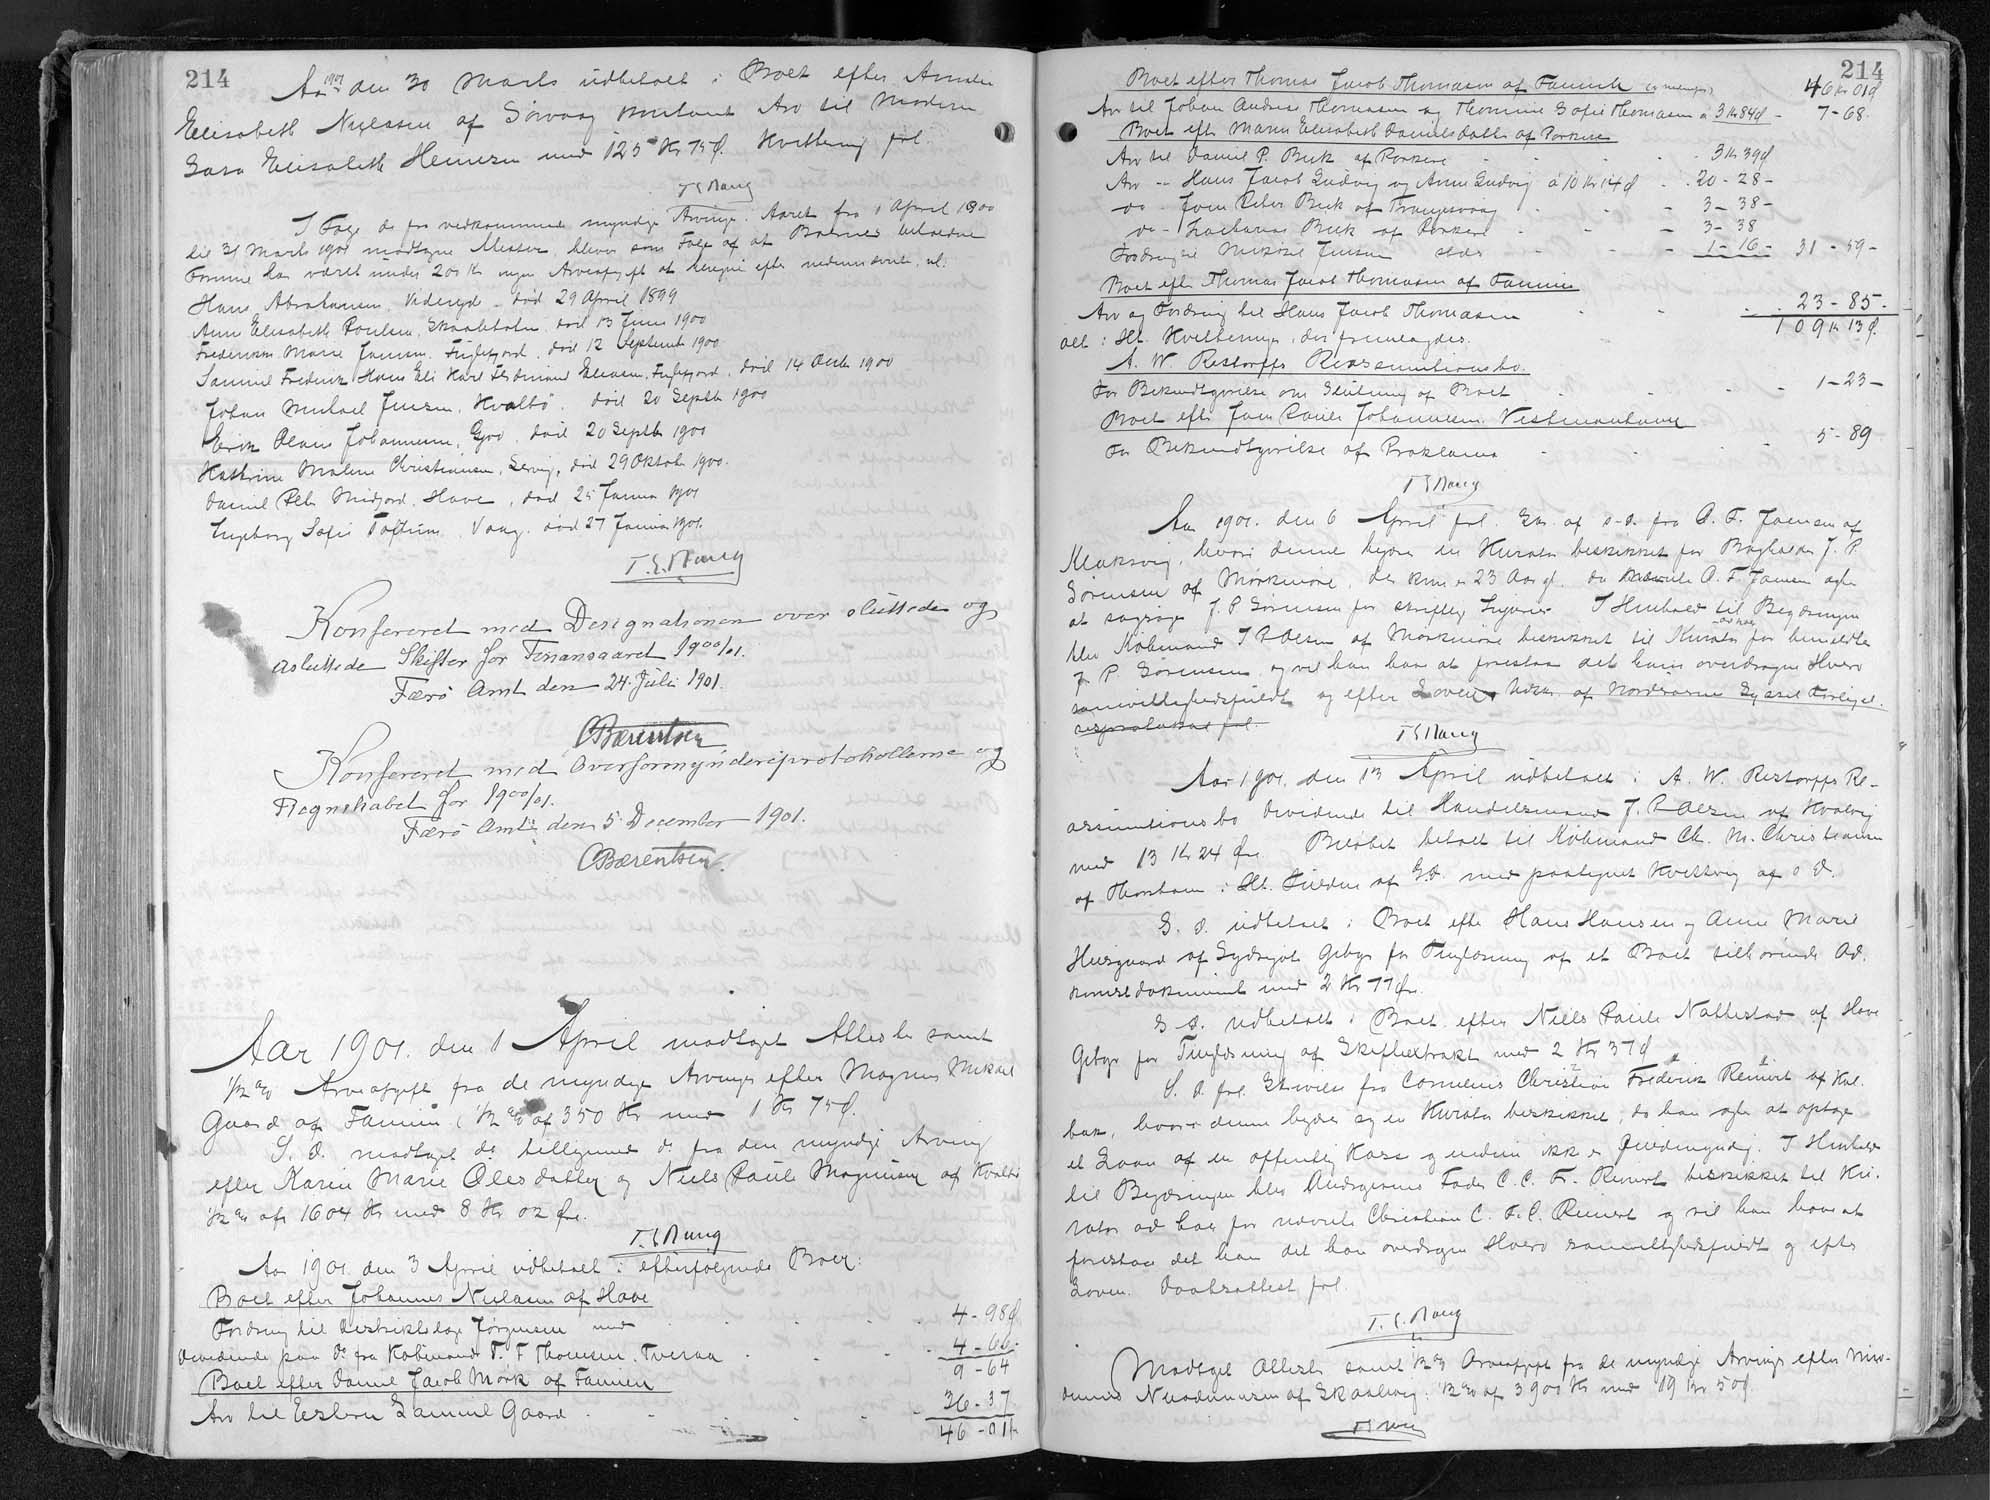 214
Aar 1901 den 30 Marts udbetalt i Boet efter
Elisabeth Nielsen af Sørvaag Arv til Moderen
Sara Elisabeth Heinesen med 125 Kr 75 Ø. Kvittering frl.
T S Bang
I Følge de fra vedkommende myndige Arvinge i Aaret fra 1 April 1900
til 31 Marts 1901 modtagne blever som Følge af at Boernes beholdne
Formue har været under 200 Kr ingen Arveafgift at beregne efter nedennævnte,
Hans Abrahamsen, Videreji død 29 April 1899
Anne Elisabeth Poulsen, Skaaleholm, død 13 Juni 1900
Marie Jansen, Fuglefjord, død 12 Septemb 1900
Samuel Frederik Hans Eli Karl Ferdinand Eliasen, Fuglefjord, død 14 1900
Johan Michael Jensen, Kvalbø, død 20 Septb 1900
Erik Olaus Johannesen, død 20 Septb 1900
Kathrine Malene Christiansen, død 29 Oktober 1900.
Daniel Peter Midjord, Hove, død 25 Januar 1901
Ingeborg Sofie Toftum, Vaag, død 27 Januar 1901.
T. S. Bang
Konfereret med Designationen over sluttede og
usluttede Skifter for Finansaaret 1900/01.
Færø Amt den 24. Juli 1901.
CBærentsen
Konfereret med Overformynderiprotokollerne og
Regnskabet for 1900/01.
Færø Amt den 5 December 1901.
CBærentsen.
Aar 1901. den 1 April modtaget Attester samt
1/2 % Arveafgift fra de myndige Arvinge efter Magnus Mikael
Gaard af Famien (1/2 % af 350 Kr med 1 Kr 75 Ø.
S. D. modtaget do tilligemed do fra den myndige Arving
efter Karin Marie Olesdatter og Niels Poule Magnusen af Kvalbø
1/2 % af 1604 Kr med 8 Kr 02 Øre.
T. S Bang
Aar 1901. den 3 April udbetalt i efterfølgende Boer:
Boet efter Johannes Nielsen af Hove
Fordring til Distriktslæge Jørgensen med 4 - 98 Ø
Dividende paa do fra Købmand T. F Thomsen, Tveraa 4 - 66
9 - 64
Boet efter Daniel Jacob Mørk af Famien
Arv til Esbern Samuel Gaard 36 - 37
46 - 01
214
Boet efter Thomas Jacob Thomasen af Famien 46 Kr 01 Ø
Arv til Johan Andreas Thomasen og Thomine Sofie Thomasen a 3 Kr 84 Ø - 7 - 68
Boet eft Maren Elisabeth Danielsdatter af Porkere
Arv til Daniel P. Bech af Porkere 3 Kr 39 Ø
Arv - Hans Jacob Ludvig og Anne Ludvig a 10 Kr 14 Ø 20 - 28 -
do - Joen Peter Bech af Trangisvaag 3 - 38 -
do - Zacharias Bech af Porkere 3 - 38
Fordring til Mikkel Jensen 1 - 16 - 31 - 59 -
Boet efter Thomas Jacob Thomasen af Famien
Arv og Fordring til Hans Jacob Thomasen 23 - 85 -
109 Kr 13 Ø
alt i Hht. Kvitteringer, der fremlagdes.
A. W. Restorffs Reassumtionsbo
For Bekendtgørelse om Slutning af Boet 1 - 23 -
Boet eft. Joen Poule Johannesen Vestmanhavn
For Bekendtgørelse af Proklama 5 - 89
T S Bang
Aar 1901. den 6 April frl. Skr. af s. d. fra O. F. Joensen af
Klaksvig, hvori denne begærer en Kurator beskikket for Bogholder J. P.
Sørensen af Mørkmøre, der kun er 23 Aar gl. da O. F. Joensen agter
at sagsøge J. P Sørensen for skriftlig Injurier. I Henhold til Begæringen
blev Købmand J P Olsen af Mørkmøre beskikket til Kurator ad hoc for bemeldte
J. P. Sørensen, og vil han have at forestaa det ham overdragne Hverv
samvittighedsfuldt og efter Loven. Udskr. af Nordrørne Sysset Forligs
T S Bang
Aar 1901. den 13 April udbetalt i A. W. Restorffs Re-
assumtionsbo Dividende til Handelsmand J. P Olsen af Kvalvig
med 13 Kr 24 Øre. Beløbet betalt til Købmand Ch. M. Christiansen
af Thorshavn i Hht. Fuldm. af G.D. med paategnet Kvittering af s. D.
S. D. udbetalt i Boet efter Hans Hansen og Anne Marie
Husgaard af Sydrejøt Gebyr for Tinglæsning af et Boet tilhørende Ad-
komstdokument med 2 Kr 77 Øre.
S D. udbetalt i Boet efter Niels Poule Nattestad af Hove
Gebyr for Tinglæsning af Skifteextrakt med 2 Kr 37 Ø
S. D. frl. Skrivelse fra Cornelius Christian Frederik Reinert af Kol-
bak, hvori denne begærer sig en Kurator beskikket, da han agter at optage
et Laan af en offentlig Kasse og endnu ikke er fuldmyndig. I Henhold
til Begæringen blev Andragerens Fader C. C. Fr. Reinert beskikket til Ku-
rator ad hoc for nævnte Christian C. F. C. Reinert og vil han have at
forestaa det ham overdragne Hverv samvittighedsfuldt og efter
Loven. Daabsattest frl.
T. S. Bang
Modtaget Attester samt 1/2 % Arveafgift fra de myndige Arvinge efter Niko-
demus Nicodemusen af Skaalevig. 1/2 % af 3900 Kr med 19 Kr 50 Ø
T S Bang